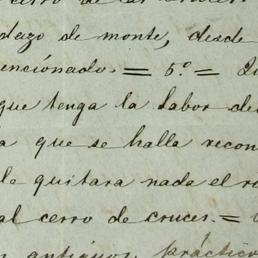 cerro de las cruces
dazo de monte, desde
encionado. = 5.º =
que tenga la labor de
a que se halla recon
le quitara nada el r
al cerro de cruces. =
n antiguos, práctico